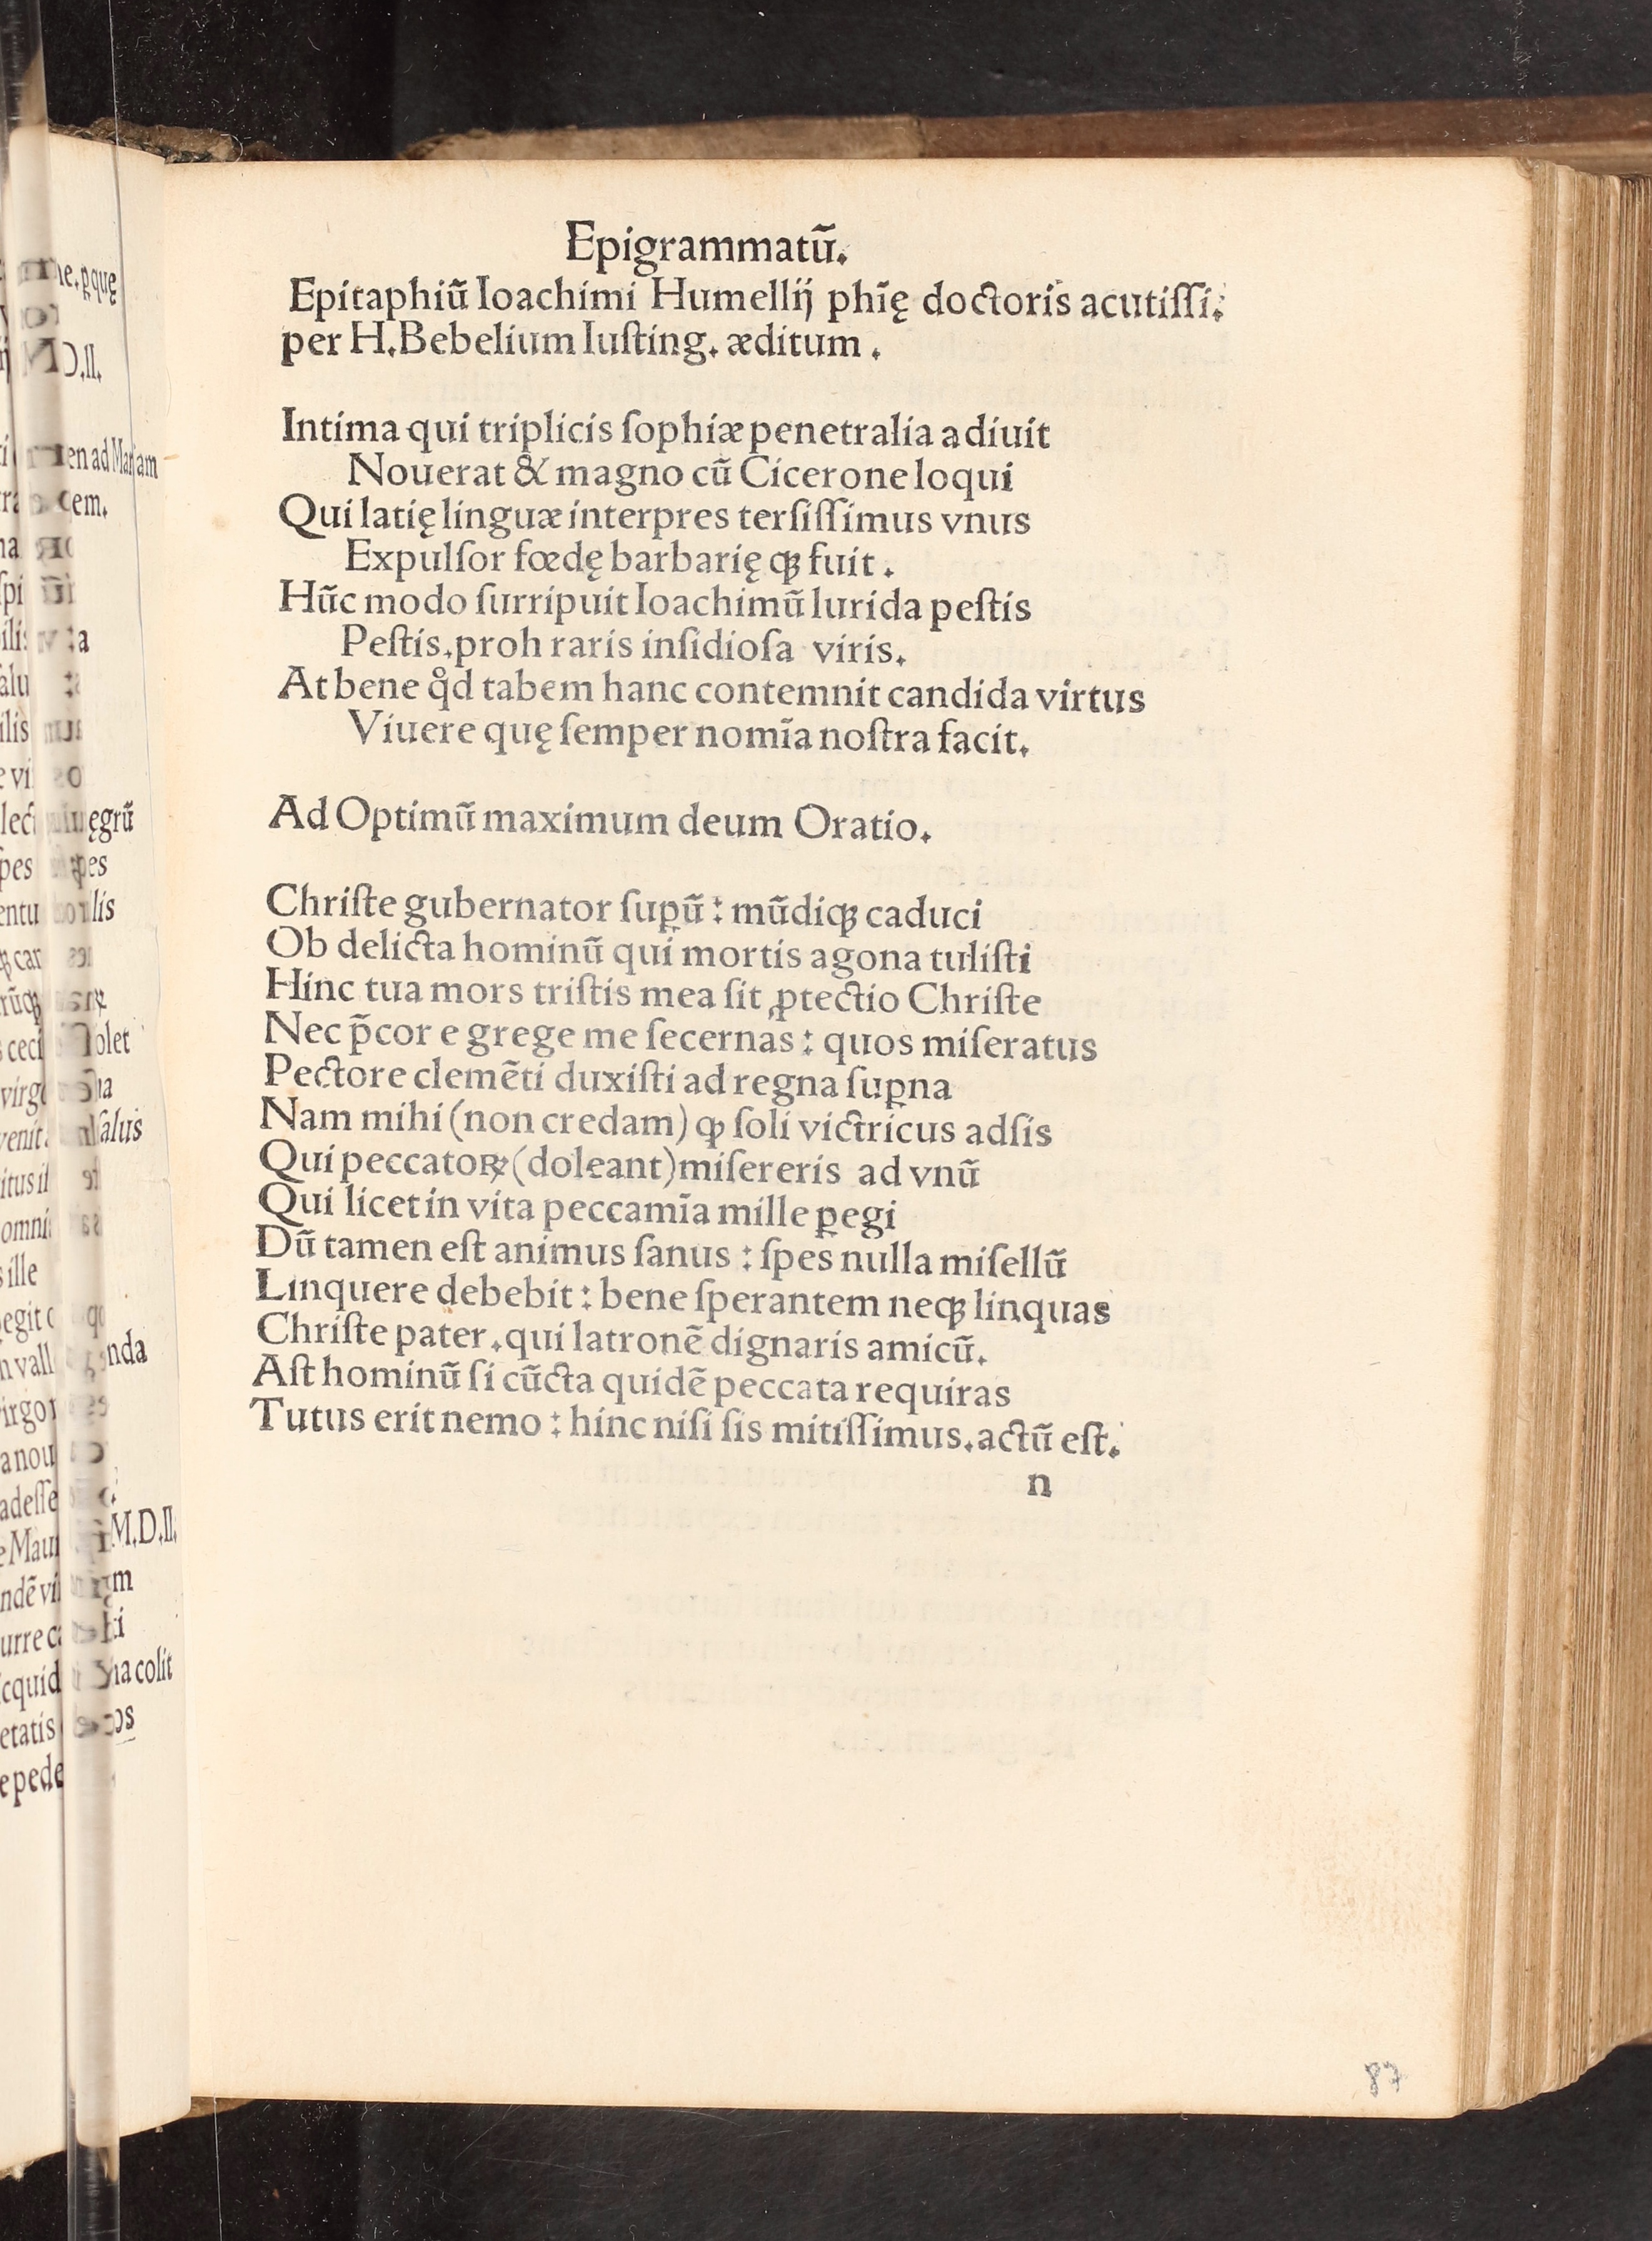 Epigrammatū.
Epitaphiū Ioachimi Humellij phīę doctoris acutiſſi.
per H.Bebelium Iuſting. æditum.

Intima qui triplicis ſophiæ penetralia adiuit
Nouerat & magno cū Cicerone loqui
Qui latię linguæ interpres terſiſſimus vnus
Expulſor fœdę barbarię qꝫ fuit.
Hūc modo ſurripuit Ioachimū lurida peſtis
Peſtis.proh raris inſidioſa viris.
At bene qͦd tabem hanc contemnit candida virtus
Viuere quę ſemper nomīa noſtra facit.

Ad Optimū maximum deum Oratio.

Chriſte gubernator ſuꝑū : mūdiqꝫ caduci
Ob delicta hominū qui mortis agona tuliſti
Hinc tua mors triſtis mea ſit ꝓtectio Chriſte
Nec p̄cor e grege me ſecernas : quos miſeratus
Pectore clemēti duxiſti ad regna ſuꝑna
Nam mihi (non credam) ꝙ ſoli victricus adſis
Qui peccatoꝝ (doleant) miſereris ad vnū
Qui licet in vita peccamīa mille ꝑegi
Dū tamen eſt animus ſanus : ſpes nulla miſellū
Linquere debebit : bene ſperantem neqꝫ linquas
Chriſte pater.qui latronē dignaris amicū.
Aſt hominū ſi cūcta quidē peccata requiras
Tutus erit nemo : hinc niſi ſis mitiſſimus.actū eſt.
n
87